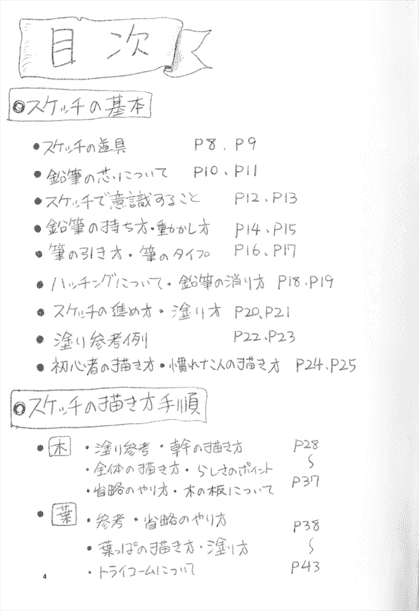 目次
◎スケッチの基本
●スケッチの道具 P8、P9
●鉛筆の芯について P10、P11
●スケッチで意識すること P12、P13
●鉛筆の持ち方・動かし方 P14、P15
●筆の引き方・筆のタイプ P16、P17
●ハッチングについて・鉛筆の消り方 P18、P19
●スケッチの進め方・塗り方 P20、P21
●塗り参考例 P22、P23
●初心者の描き方・慣れた人の描き方 P24、P25
◎スケッチの描き方手順
●木 ・塗り参考・幹の描き方 P28
・全体の描き方・らしさのポイント 〜
・省略のやり方・木の板について P37
●葉 ・参考・省略のやり方 P38
・葉っぱの描き方・塗り方 〜
・トライコームについて P43
4